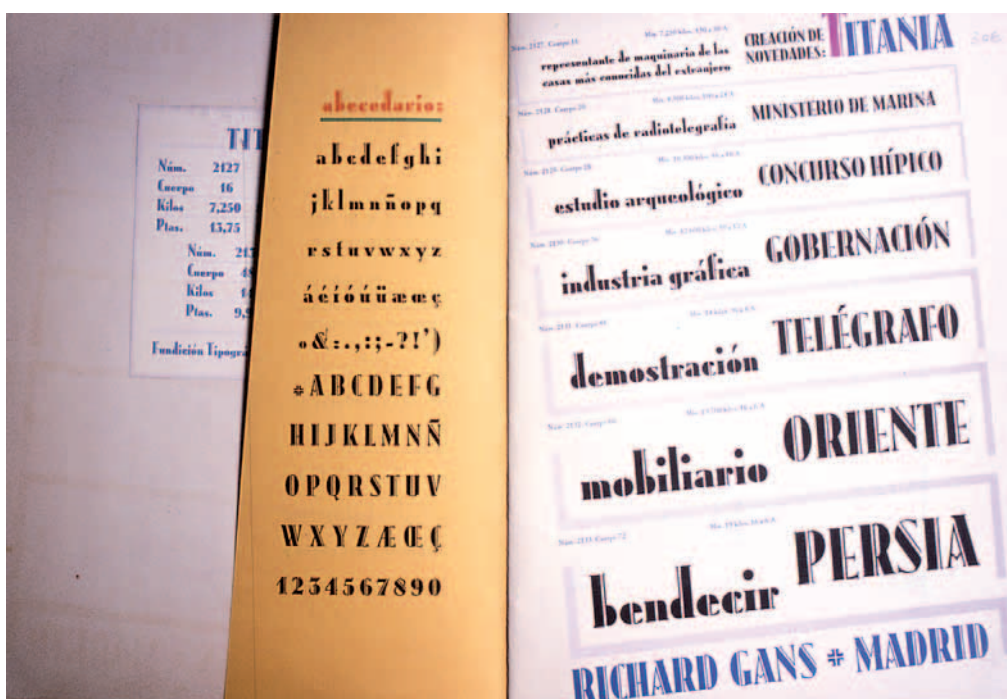 TIT
Núm. 2127
Cuerpo 16
Kilos 7,250
Ptas. 13,75
Núm.
Cuerpo
Kilos
Ptas.
Fundición Tipogr
abecedario:
abcdefghi
jklmnñopq
rstuvwxyz
áéíóúüæœç
&:.,:;-?!')
ABCDEFG
HIJKLMNÑ
OPQRSTUV
WXYZÆŒÇ
1234567890
CREACIÓN DE
NOVEDADES:
TITANIA
Núm. 2127. Cuerpo 16
representante de maquinaria de las
casas más conocidas del extranjero
Núm. 2128. Cuerpo 20
prácticas de radiotelegrafía
MINISTERIO DE MARINA
Núm. 2129. Cuerpo 28
estudio arqueológico
CONCURSO HÍPICO
Núm. 2130. Cuerpo 36
industria gráfica
GOBERNACIÓN
Núm. 2131. Cuerpo 48
demostración
TELÉGRAFO
Núm. 2132. Cuerpo 60
mobiliario
ORIENTE
Núm. 2133. Cuerpo 72
bendecir
PERSIA
RICHARD GANS MADRID